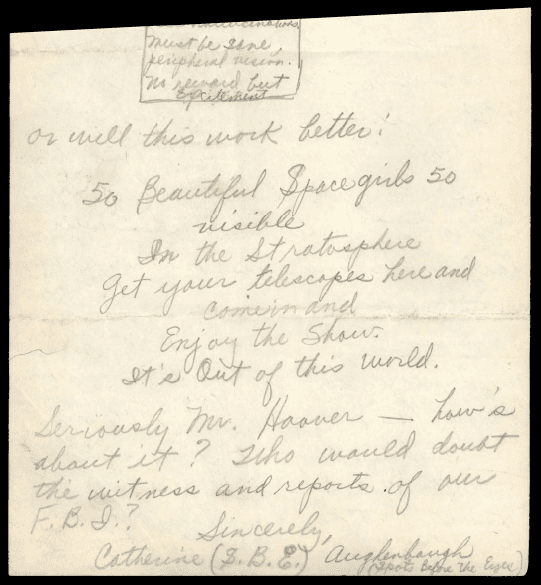 must be sane,
peripheral vision.
No reward but
Excitement
or will this work better:
50 Beautiful Spacegirls 50
visible
In the Stratosphere
Get your telescopes here and
come in and
Enjoy the Show.
It's Out of this World.
Seriously Mr. Hoover — how's
about it? Who would doubt
the witness and reports of our
F.B.I.?
Sincerely,
Catherine (S.B.E.) Auglenbaugh
(Spots Before The Eyes)